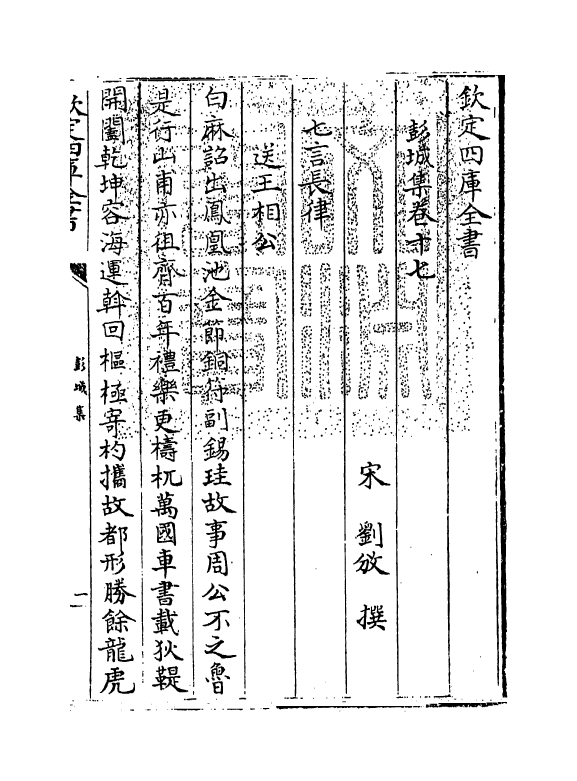 欽定四庫全書
彭城集卷十七
宋 劉攽 撰
七言長律
送王相公
白麻詔出鳳凰池金節銅符副錫珪故事周公不之魯
是行山甫亦徂齊百年禮樂更檮杌萬國車書載狄鞮
開闔乾坤容海運斡回樞極寄杓攜故都形勝餘龍虎
欽定四庫全書
彭城集
一